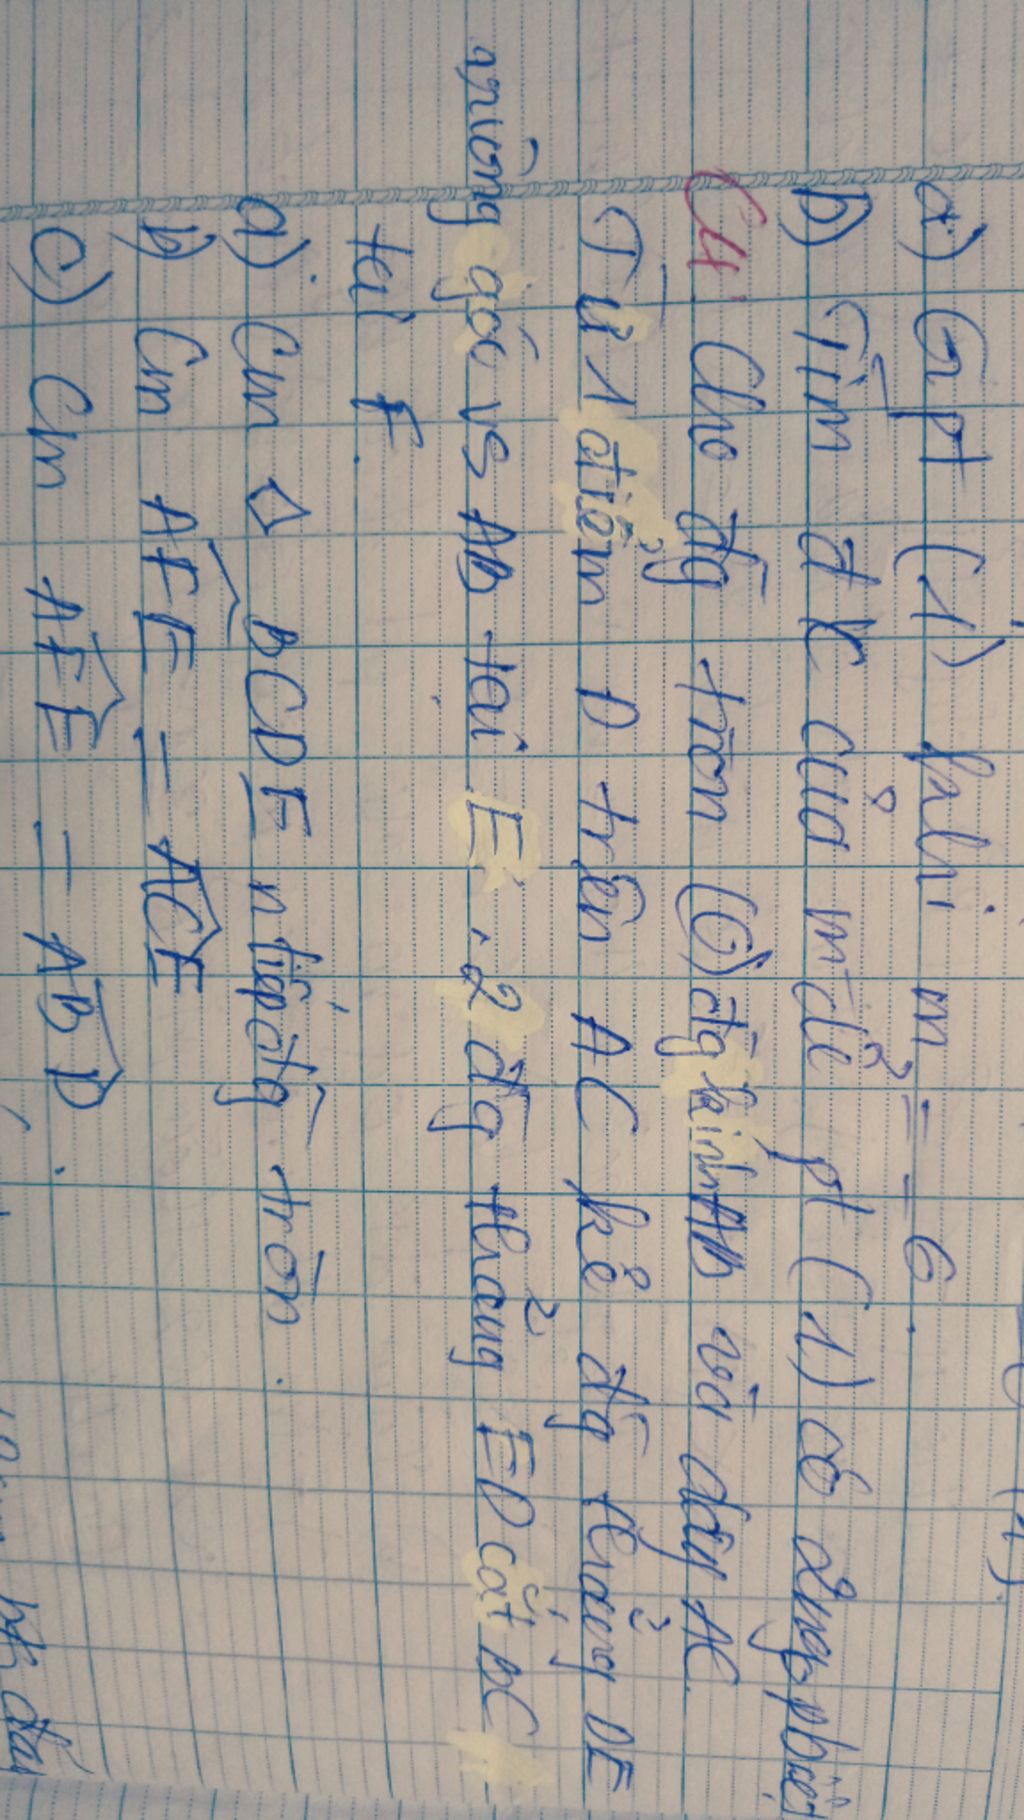 a) Gpt (1) khi m = - 6.
b) Tìm đk của m để pt (1) có 2 ng phbiệt
C4 Cho đg tròn (O) đg kính AB và dây AC.
Từ 1 điểm D trên AC kẻ đg thẳng DE
góc vs AB tại E. 2 đg thẳng ED cắt BC
tại F.
a) Cm ◇ BCDE ntiếp đg tròn.
b) Cm AFE = ACE
c) Cm AFE = ABD.